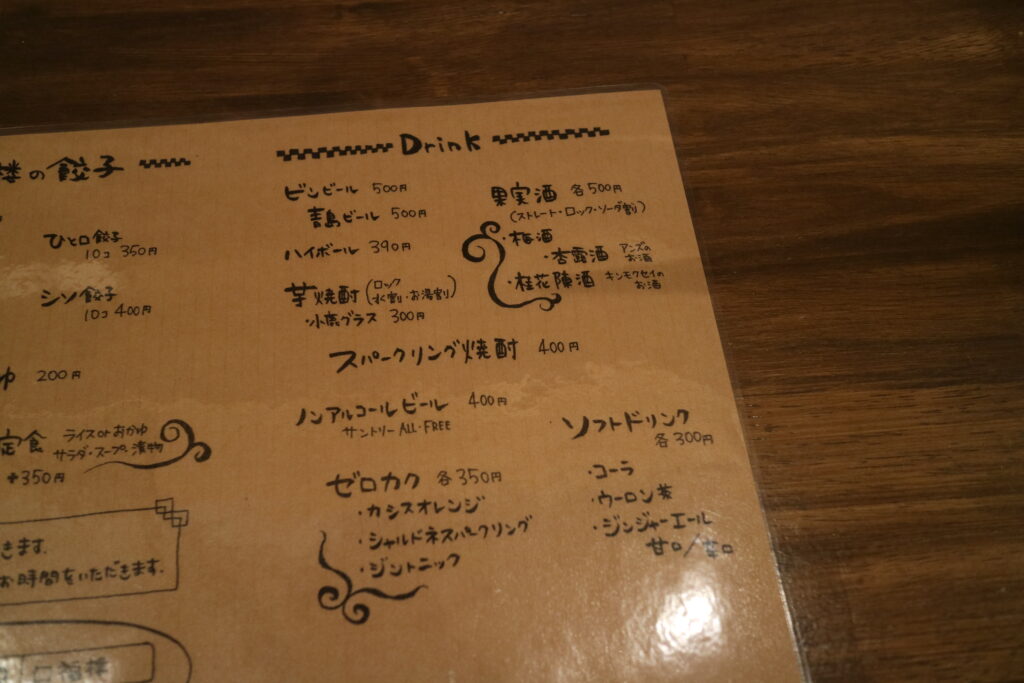 楼の餃子
ひと口餃子
10コ 350円
シソ餃子
10コ 400円
ゆ 200円
定食 ライスorおかゆ
サラダ・スープ、漬物
+350円
きます。
お時間をいただきます。
Drink
ビンビール 500円
青島ビール 500円
ハイボール 390円
芋焼酎 (ロック
水割・お湯割)
・小鹿グラス 300円
果実酒 各500円
(ストレート・ロック・ソーダ割)
・梅酒
・杏露酒 アンズの
お酒
・桂花陳酒 キンモクセイの
お酒
スパークリング焼酎 400円
ノンアルコールビール 400円
サントリー ALL-FREE
ゼロカク 各350円
・カシスオレンジ
・シャルドネスパークリング
・ジントニック
ソフトドリンク
各300円
・コーラ
・ウーロン茶
・ジンジャーエール
甘口/辛口